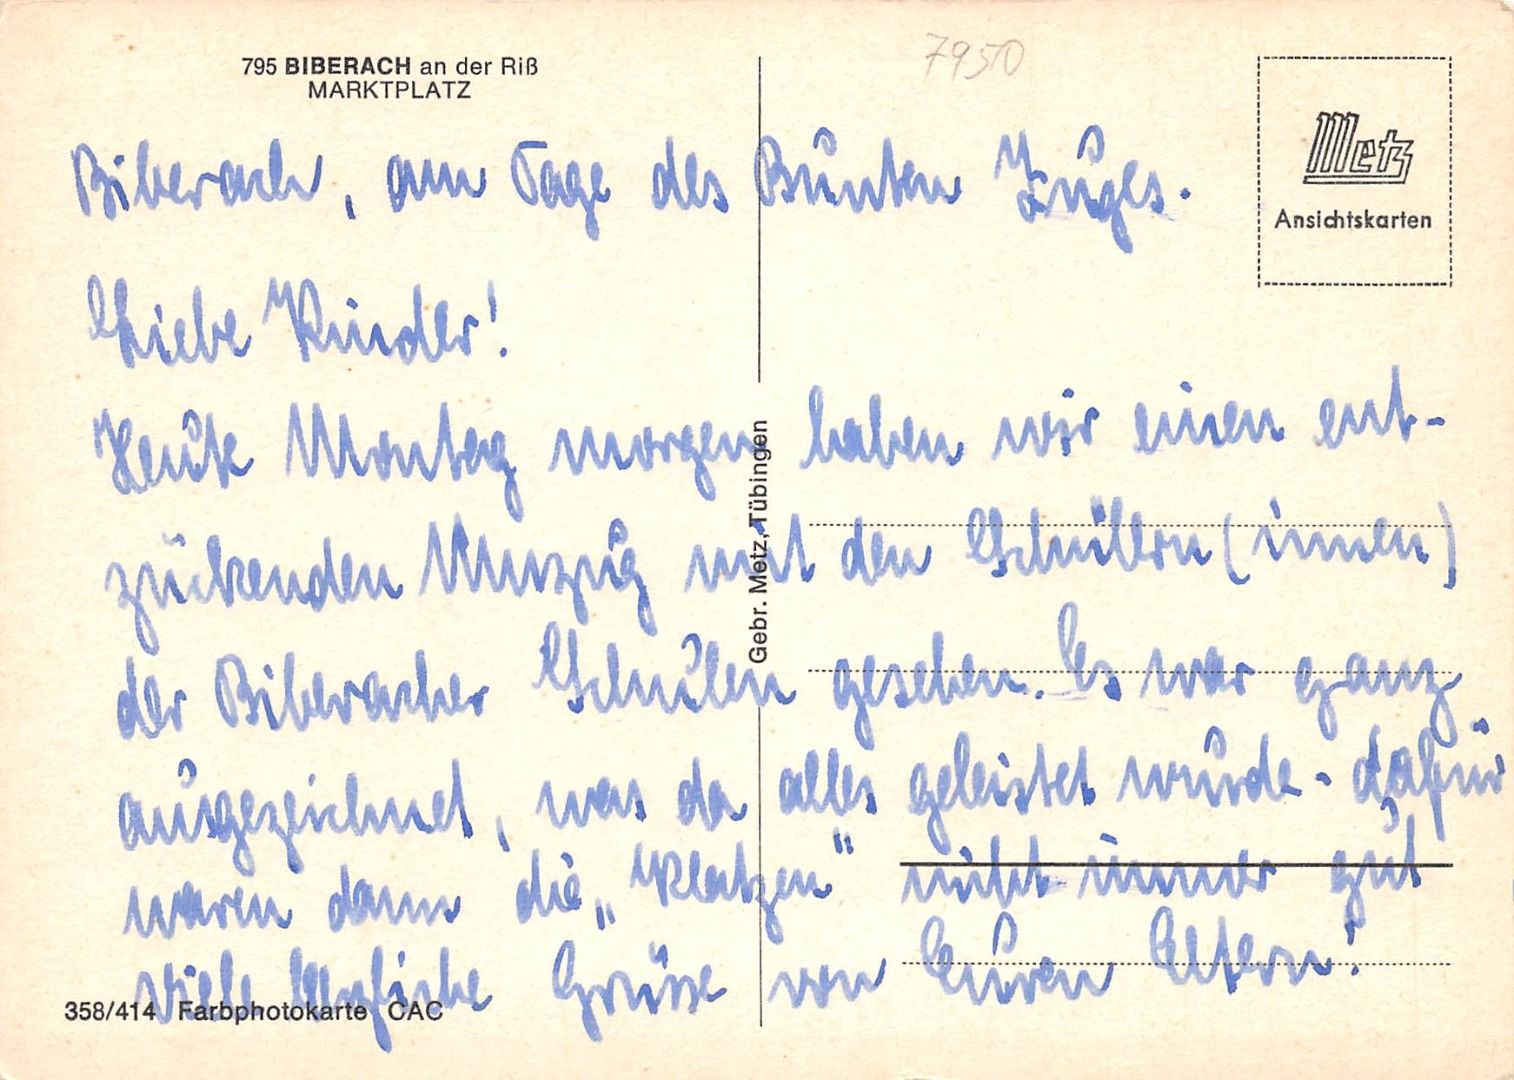 795 BIBERACH an der Riß
MARKTPLATZ
7950
Metz
Ansichtskarten
Biberach, am Tage des Bunten Zuges.
Liebe Kinder!
Heute Montag morgen haben wir einen ent-
zückenden Umzug mit den Schülern (innen)
der Biberacher Schulen gesehen. Es war ganz
ausgezeichnet, was da alles geleistet wurde - dafür
waren dann die „Klatzen" nicht immer gut
Viele herzliche Grüsse von Euren Eltern!
358/414 Farbphotokarte CAC
Gebr. Metz, Tübingen